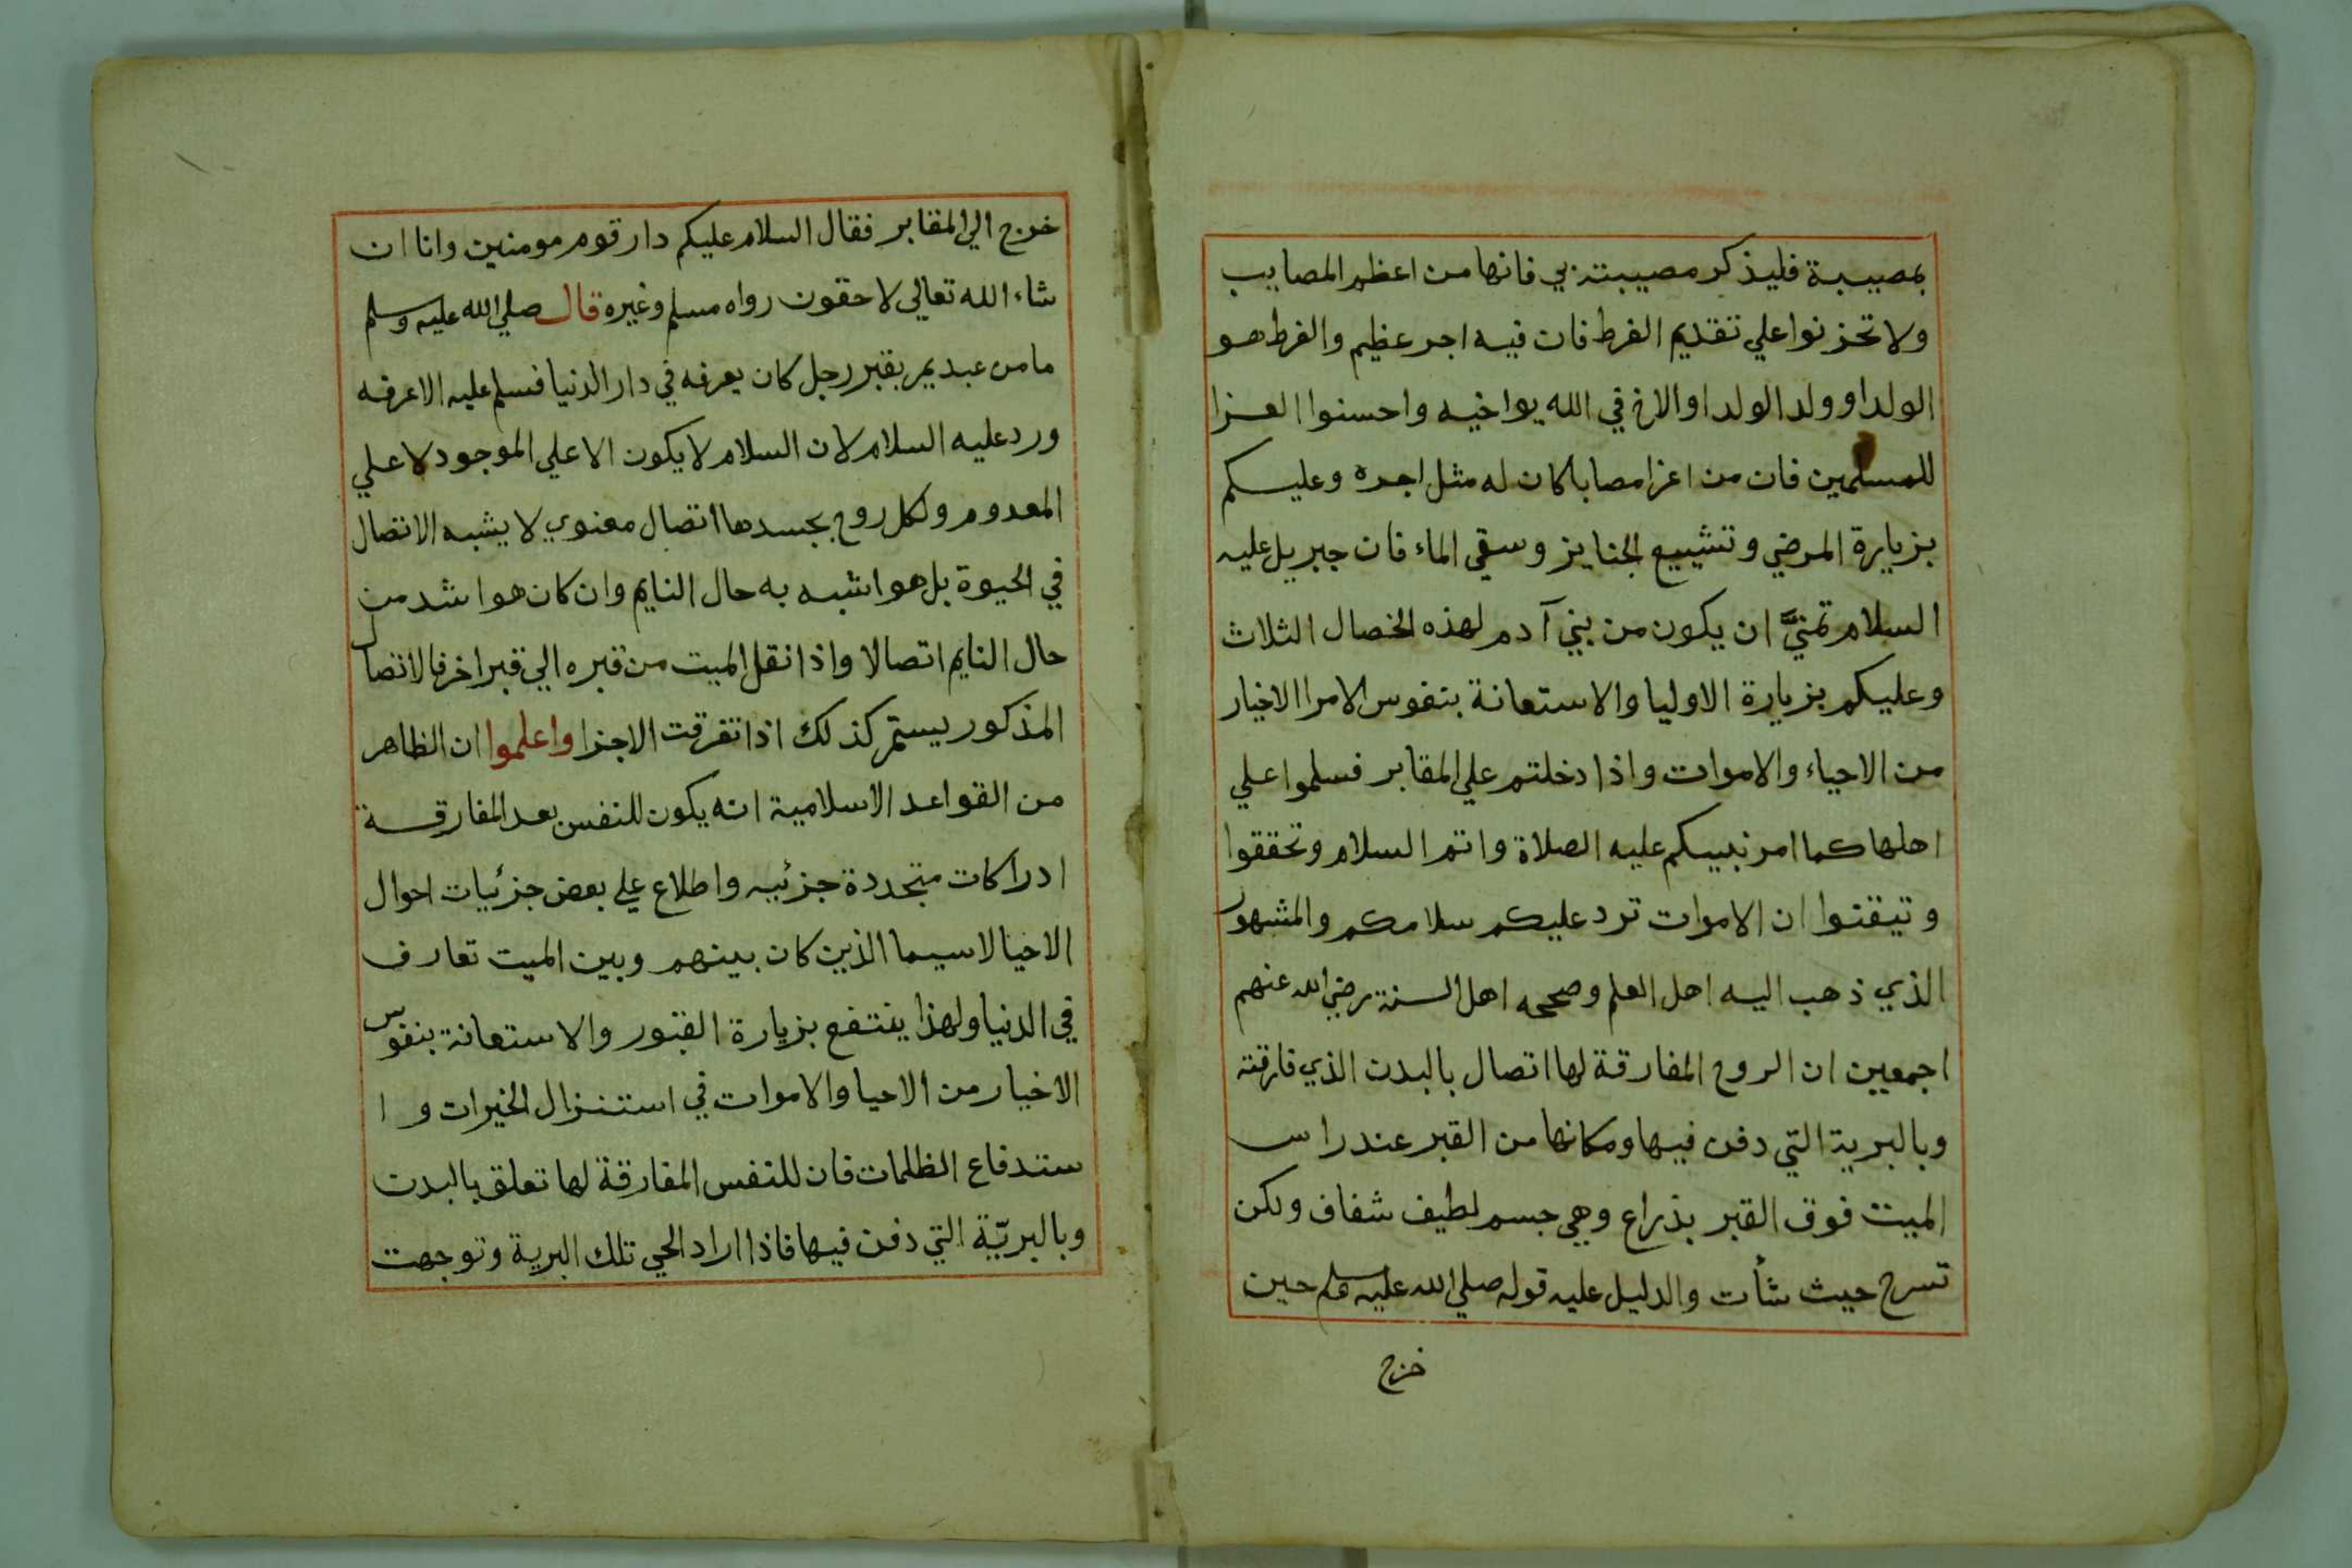 بمصيبة فليذكر مصيبته بي فانها من اعظم المصايب
ولا تحزنوا علي تقديم الفرط فان فيه اجر عظيم والفرط هو
الولد او ولد الولد او الاخ في الله يواخيه واحسنوا العزا
للمسلمين فان من اعزا مصابا كان له مثل اجره وعليكم
بزيارة المرضي وتشييع الجنايز وسقي الماء فان جبريل عليه
السلام تمنيَّ ان يكون من بني آدم لهذه الخصال الثلاث
وعليكم بزيارة الاوليا والاستعانة بنفوس الامرا الاخيار
من الاحياء والاموات واذا دخلتم علي المقابر فسلموا علي
اهلها كما امر نبيكم عليه الصلاة واتم السلام وتحققوا
وتيقنوا ان الاموات ترد عليكم سلامكم والمشهور
الذي ذهب اليه اهل العلم وصححه اهل السنة رضي الله عنهم
اجمعين ان الروح المفارقة لها اتصال بالبدن الذي فارقته
وبالبرية التي دفن فيها ومكانها من القبر عند راس
الميت فوق القبر بذراع وهي جسم لطيف شفاف ولكن
تسرح حيث شأت والدليل عليه قوله صلي الله عليه وسلم حين
خرج
خرج الي المقابر فقال السلام عليكم دار قوم مومنين وانا ان
شاء الله تعالي لاحقون رواه مسلم وغيره قال صلي الله عليه وسلم
ما من عبد يمر بقبر رجل كان يعرفه في دار الدنيا فسلم عليه الا عرفه
ورد عليه السلام لان السلام لا يكون الا علي الموجود لا علي
المعدوم ولكل روح بجسدها اتصال معنوي لا يشبه الاتصال
في الحيوة بل هو اشبه به حال النايم وان كان هو اشد من
حال النايم اتصالا واذا نقل الميت من قبره الي قبر اخر فالاتصال
المذكور يستمر كذلك اذا تفرقت الاجزا واعلموا ان الظاهر
من القواعد الاسلامية انه يكون للنفس بعد المفارقة
ادراكات متجددة جزئيه واطلاع علي بعض جزئيات احوال
الاحيا لاسيما الذين كان بينهم وبين الميت تعارف
في الدنيا ولهذا ينتفع بزيارة القبور والاستعانة بنفوس
الاخيار من الاحيا والاموات في استنزال الخيرات و ا
ستدفاع الظلمات فان للنفس المفارقة لها تعلق بالبدن
وبالبريّة التي دفن فيها فاذا اراد الحي تلك البرية وتوجهت